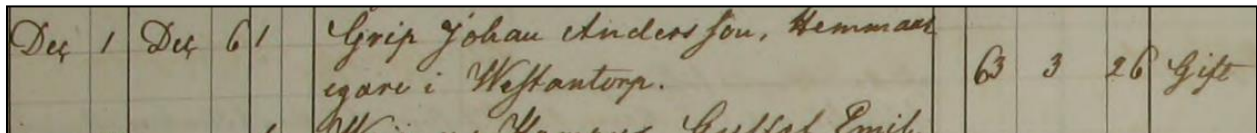 Dec 1 Dec 6 1 Grip Johan Andersson, Hemmans
egare i Westantorp. 63 3 26 Gift
Gustaf Emil